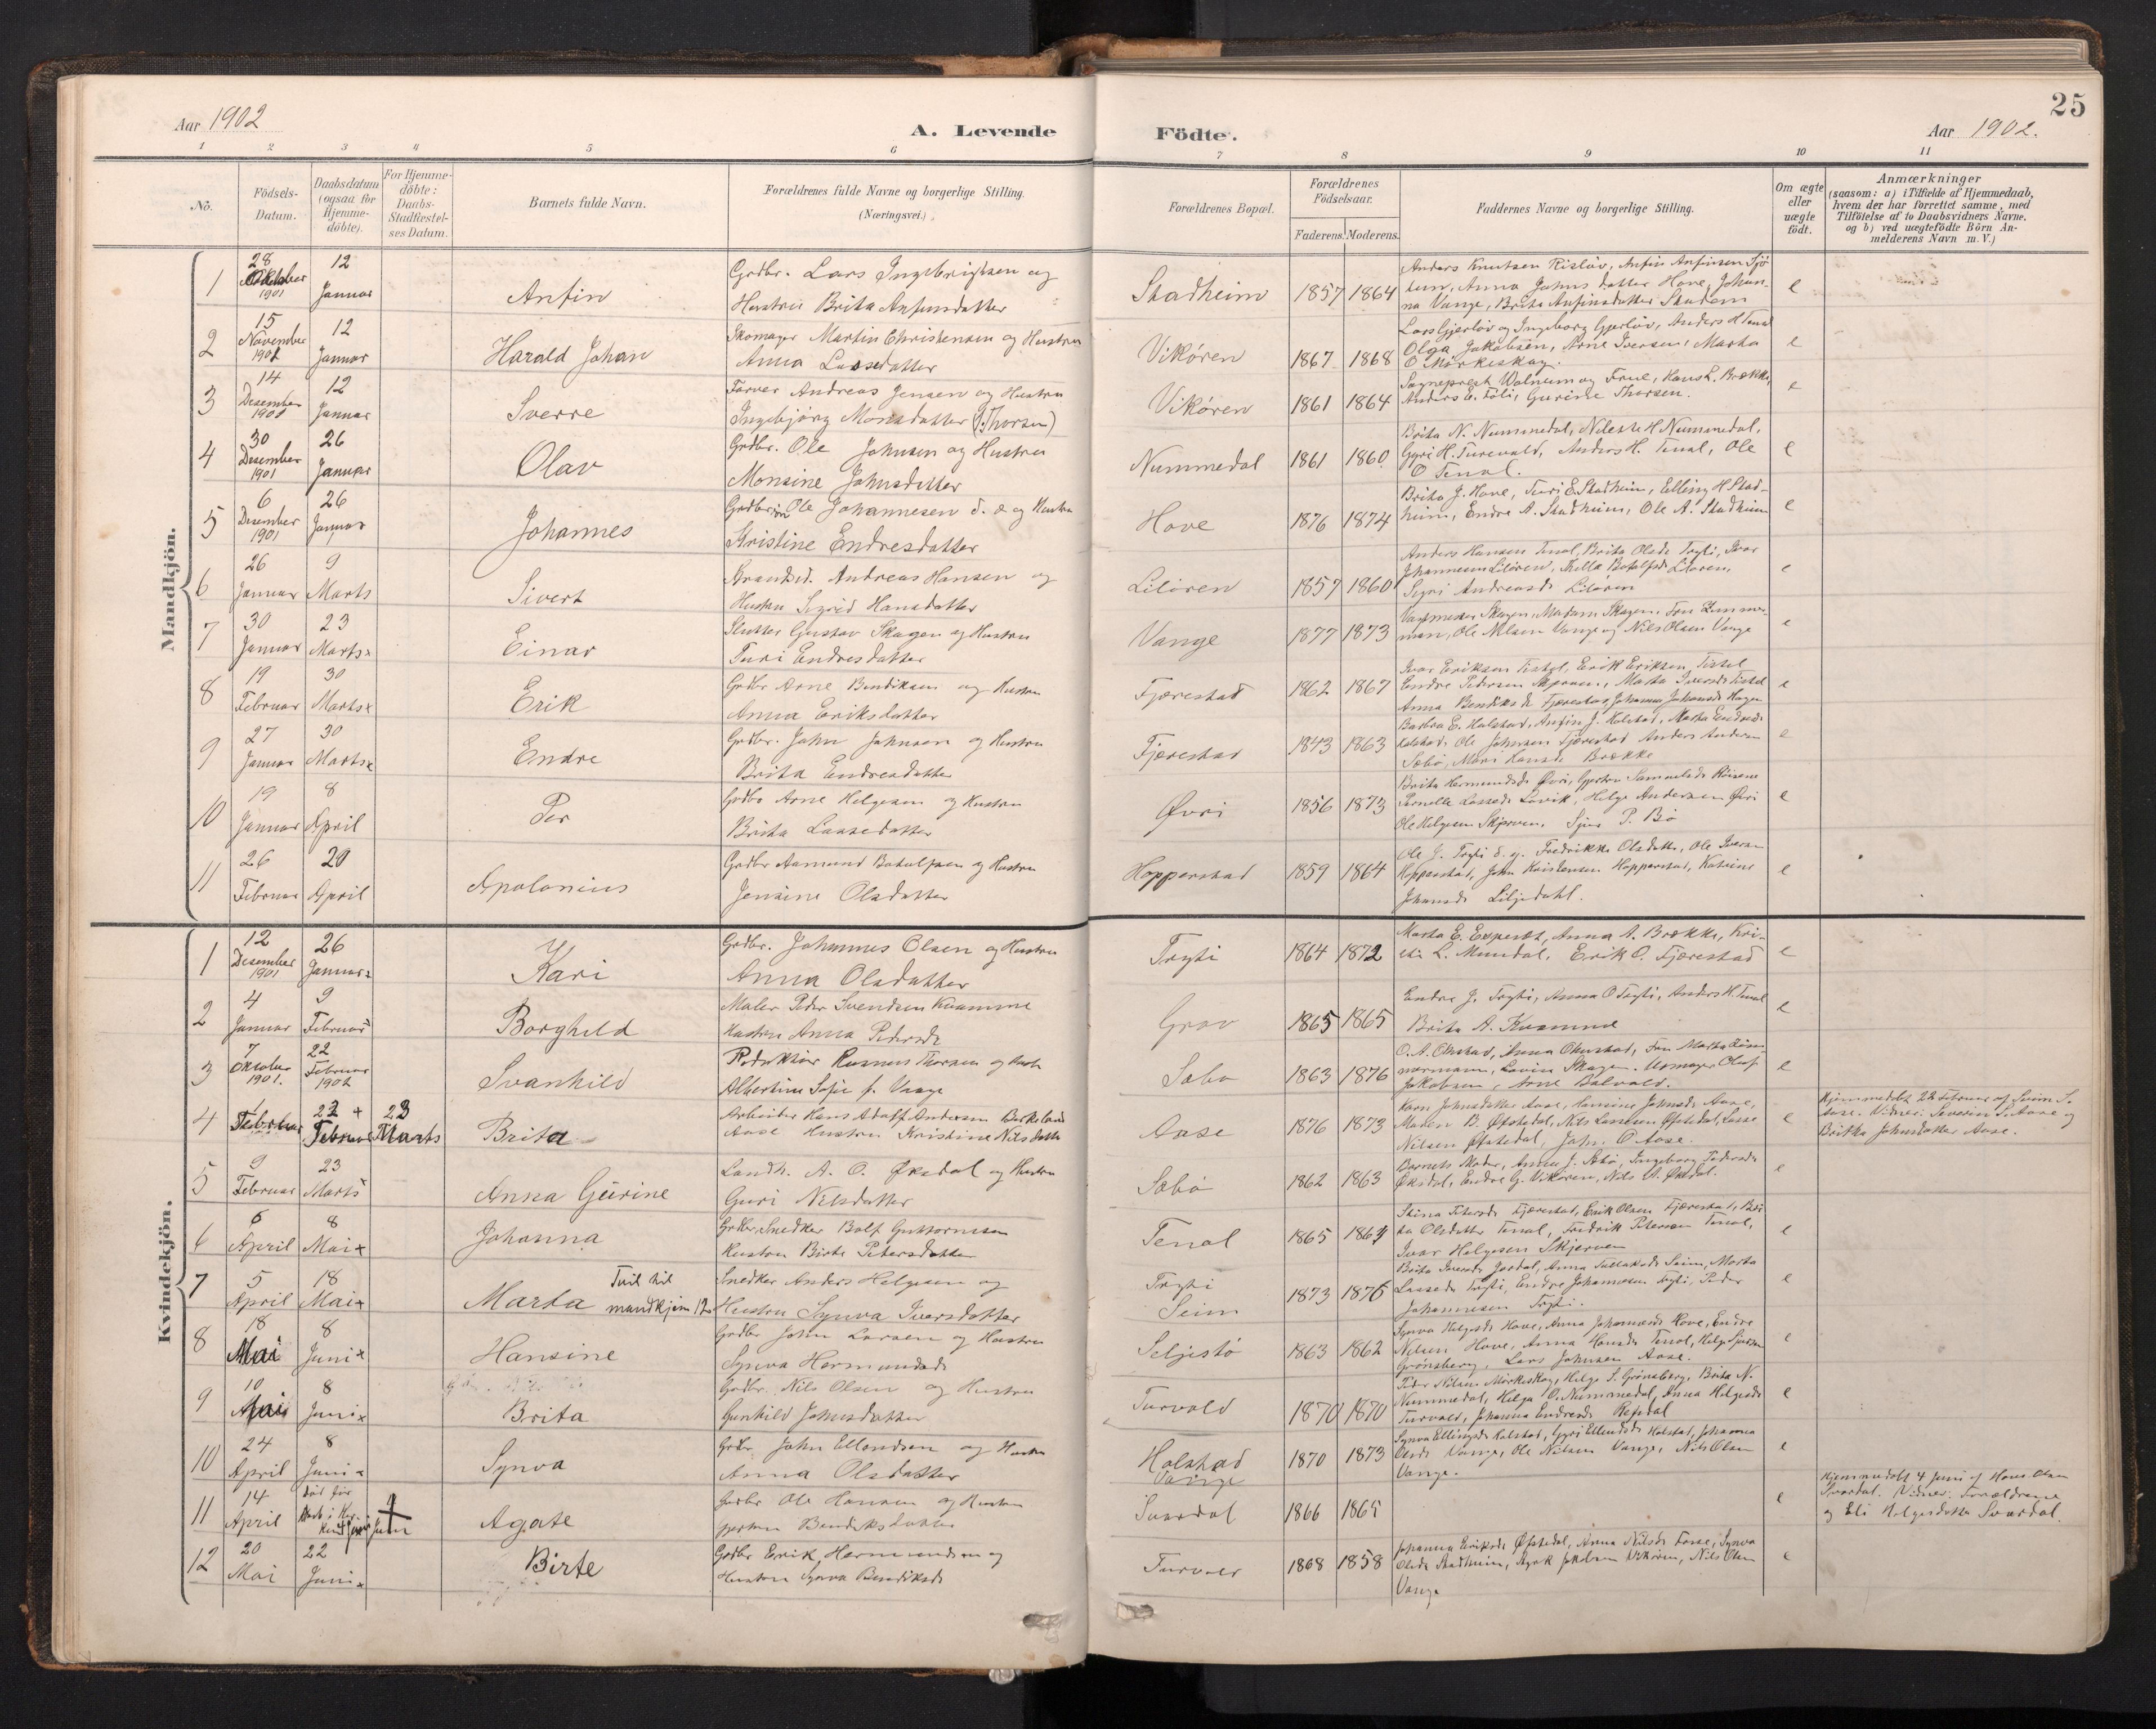 Aar 1902
A. Levende Födte.
Aar 1902.
25
1 2 3 4 5 6 7 8 9 10 11
No.
Födsels-
Datum.
Daabsdatum
(ogsaa for
Hjemme-
döbte).
For Hjemme-
döbte:
Daabs-
Stadfæstel-
ses Datum.
Barnets fulde Navn.
Forældrenes fulde Navne og borgerlige Stilling.
(Næringsvei.)
Forældrenes Bopæl.
Forældrenes
Födselsaar.
Faderens. Moderens.
Faddernes Navne og borgerlige Stilling.
Om ægte
eller
uægte
födt.
Anmærkninger
(saasom: a) i Tilfælde af Hjemmedaab,
hvem der har forrettet samme, med
Tilföielse af to Daabsvidners Navne,
og b) ved uægtefödte Börn An-
melderens Navn m. V.)
Mandkjön.
1 28 Oktober 1901 12 Januar Anfin
Grdbr. Lars Ingebrigtsen og
Hustru Brita Anfinsdatter
Stadheim 1857 1864
Anders Knutsen Risløv, Anfin Anfinsen Sjø
tun, Anna Johns datter Hove, Johan-
na Vange, Brita Anfinsdatter Stadem
e
2 15 November 1901 12 Januar Harald Johan
Skomager Martin Christensen og Hustru
Anna Lassedatter
Vikøren 1867 1868
Lars Gjerløv og Ingeborg Gjerløv, Anders H Tenal
Olga Jakobsen, Arne Iversen, Marta
O Mørkeskog.
e
3 14 Desember 1901 12 Januar Sverre
Farver Andreas Jensen og Hustru
Ingebjørg Monsdatter (f. Thorsen)
Vikøren 1861 1864
Sogneprest Walnum og Frue, Hans L. Brekke,
Anders E. Føli, Gurine Thorsen.
e
4 30 Desember 1901 26 Januar Olav
Grdbr. Ole Johnsen og Hustru
Monsine Johnsdatter
Nummedal 1861 1860
Brita N. Nummedal, H Nummedal,
Gyri H. Turvald, Anders H. Tenal, Ole
O Tenal.
e
5 6 Desember 1901 26 Januar Johannes
Grdbr. Ole Johannesen d. e og Hustru
Kristine Endresdatter
Hove 1876 1874
Brita J. Hove, Turi E. Stadheim, Elling H Stad-
heim, Endre A. Stadheim, Ole A. Stadheim
e
6 26 Januar 9 Marts Sivert
Strandsid. Andreas Hansen og
Hustru Sigrid Hansdatter
Liløren 1857 1860
Anders Hansen Tenal, Brita Olsdr Tryti, Ivar
Johannesen Liløren, Botolfsdr Liløren,
Sigri Andreasdr Liløren
e
7 30 Januar 23 Marts x Einar
Slutter Gustav Skagen og Hustru
Turi Endresdatter
Vange 1877 1873
Skagen, Madam Skagen, Fru Zimmer-
man, Ole Nilsen Vange og Nils Olsen Vange
e
8 19 Februar 30 Marts x Erik
Grdbr Arne Bendiksen og Hustru
Anna Eriksdatter
Fjærestad 1862 1867
Ivar Eriksen Tistel, Erik Eriksen Tistel
Endre Pedersen Skjerven, Marta Iversdr Tistel
Anna Bendiksdr Fjærestad, Johanna Johansdr Hagen
e
9 27 Januar 30 Marts x Endre
Grdbr. John Johnsen og Hustru
Brita Endresdatter
Fjærestad 1843 1863
Barbra E. Halstad, Anfin J. Holstad, Marta Endresdr
Holstad, Ole Johnsen Fjærestad Anders Andersen
Sæbø, Mari Hansdr Brække
e
10 19 Januar 8 April Per
Grdbr Arne Helgesen og Hustru
Brita Lassedatter
Øvri 1856 1873
Brita Hermundsdr Øvri, Gjertru Samuelsdr
Pernille Lassedr Lavik, Helge Andersen Øvri
Ole Helgesen Skjerven, Sjur P. Bø
e
11 26 Februar 20 April Apolonius
Grdbr Aamund Botolfsen og Hustru
Jensine Olsdatter
Hopperstad 1859 1864
Ole J. Tryti d. y. Fredrikke Olsdatter, Ole Iversen
Hopperstad, John Kristensen Hopperstad, Katrine
Johansdr Liljedahl.
e
Kvindekjön.
1 12 Desember 1901 26 Januar x Kari
Grdbr. Johannes Olsen og Hustru
Anna Olsdatter
Tryti 1864 1872
Marta E. Espeseth, Anna A. Brække, Kri-
sti L. Mundal, Erik O. Fjærestad
e
2 4 Januar 9 Februar Borghild
Maler Peder Svendsen Kvamme
Hustru Anna Pedersdr
Grov 1865 1865
Endre J. Tryti, Anna O Tryti, Anders H. Tenal
Brita A. Kvamme
e
3 7 Oktober 1901. 22 Februar 1902 Svanhild
Redaktør Rasmus Thorsen og
Albertine Sofie f. Unage
Sæbø 1863 1876
O. A. Ohnstad, Anna Ohnstad, Fru Marta Zim
mermann, Lovise Skagen. Urmager Olaf
Jakobsen, Arne Bolvald.
e
4 1 Februar 22 + Februar 23 Marts Brita
Arbeider Hans Adolf Andersen Birkeland
Aase Hustru Kristine Nilsdatter
Aase 1876 1873
Kari Johnsdatter Aase, Hansine Johnsdr Aase,
Maren B. Øfstedal, Nils Larsen Øfstedal, Lasse
Nilsen Øfstedal, Joh. O. Aase.
e
Hjemmedøbt 22 Februar af Seim S.
Aase. Vidner: Severin S. Aase og
Britha Johnsdatter Aase.
5 9 Februar 23 Marts Anna Gurine
Landh. A. O. Øksdal og Hustru
Guri Nilsdatter
Sæbø 1862 1863
Barnets Moder, Anna J. Sæbø, Ingeborg Pedersdr
Øksdal, Endre G. Vikøren, Nils A. Øksdal.
e
6 6 April 8 Mai + Johanna
Grdbr, Snedker Botolf Guttormsen
Hustru Birte Petersdatter
Tenal 1865 1864
Stina Petersdr Fjærestad, Erik Olsen Fjærestad, Bri
ta Olsdatter Tenal, Fredrik Petersen Tenal,
Ivar Helgesen Skjerven
e
7 5 April 18 Mai + Marta Tvil. til mandkjøn 12
Snedker Anders Helgesen og
Hustru Synva Iversdatter
Tryti
Seim 1873 1876
Brita Iversdr Josdal, Anna Tollaksdr Seim, Marta
Lassedr Tryti, Endre Johannesen Tryti, Peder
Johannesen Tryti.
e
8 18 Mai 8 Juni x Hansine
Grdbr John Larsen og Hustru
Synva Hermundsdr
Seljestø 1863 1862
Synva Helgesdr Hove, Anna Johannesdr Hove, Endre
Nilsen Hove, Anna Hansdr Tenal, Helge Sjursen
Grønsberg, Lars Johnsen Aase.
e
9 10 Mai 8 Juni x Brita
Grdbr. Nils Olsen og Hustru
Gunhild Johnsdatter
Turvald 1870 1870
Peder Nilsen Mørkeskog, Helge S. Grønsberg, Brita N.
Nummedal, Helga O. Nummedal, Anna Helgesdr
Turvald, Johanna Endresdr Refsdal
e
10 24 April 8 Juni x Synva
Grdbr. John Ellendsen og Hustru
Anna Olsdatter
Holstad
Vange 1870 1873
Synva Ellingsdr Holstad, Gyri Ellendsdr Holstad, Johanna
Olsdr Vange, Ole Nilsen Vange, Nils Olsen
Vange.
e
11 14 April død før Juni Agate
Grdbr Ole Hansen og Hustru
Gjertru Bendiksdatter
Svardal 1866 1865
e
Hjemmedøbt 4 Juni af Hans Olsen
Svardal. Vidner: Forældrene
og Eli Helgesdatter Svardal.
12 20 Mai 22 Juni x Birte
Grdbr Erik Hermundsen og
Hustru Synva Bendiksdr
Turvald 1868 1858
Johanna Eriksdr Øfstedal, Anna Nilsdr Fosse, Synva
Olsdr Stadheim, Vikøren, Nils Olsen
Vange
e